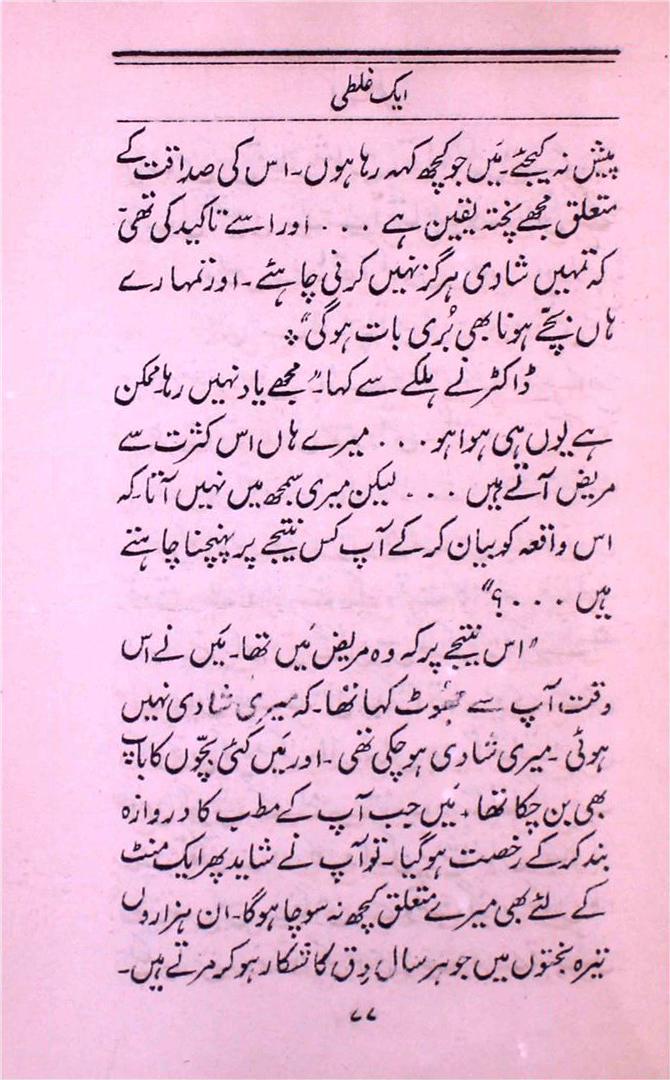 ایک غلطی
پیش نہ کیجئے۔ مَیں جو کچھ کہہ رہا ہوں۔ اس کی صداقت کے
متعلق مجھے پختہ یقین ہے ... اور اسے تاکید کی تھی
کہ تمہیں شادی ہرگز نہیں کرنی چاہئے۔ اور تمہارے
ہاں بچّے ہونا بھی بُری بات ہوگی“ ٭
ڈاکٹر نے ہلکے سے کہا۔ ”مجھے یاد نہیں رہا۔ ممکن
ہے یوں ہی ہوا ہو ... میرے ہاں اس کثرت سے
مریض آتے ہیں ... لیکن میری سمجھ میں نہیں آتا۔ کہ
اس واقعہ کو بیان کر کے آپ کس نتیجے پر پہنچنا چاہتے
ہیں ...؟“
”اس نتیجے پر کہ وہ مریض مَیں تھا۔ مَیں نے اس
وقت آپ سے جھُوٹ کہا تھا۔ کہ میری شادی نہیں
ہوئی۔ میری شادی ہو چکی تھی۔ اور مَیں کئی بچّوں کا باپ
بھی بن چکا تھا۔ مَیں جب آپ کے مطب کا دروازہ
بند کر کے رخصت ہو گیا۔ تو آپ نے شاید پھر ایک منٹ
کے لئے بھی میرے متعلق کچھ نہ سوچا ہوگا۔ ان ہزاروں
تیرہ بختوں میں جو ہر سال دِق کا شکار ہو کر مرتے ہیں۔
۷۷